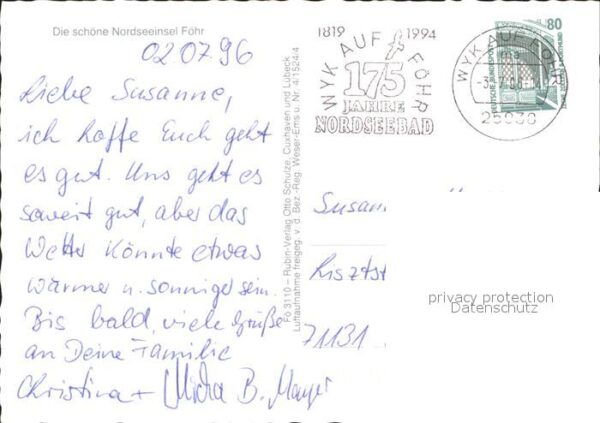 Die schöne Nordseeinsel Föhr
02.07.96
Liebe Susanne,
ich hoffe Euch geht
es gut. Uns geht es
soweit gut, aber das
Wetter könnte etwas
wärmer u. sonniger sein.
Bis bald, viele Grüße
an Deine Familie
Christina + Micha B. Mayer
Fö 3110 – Rubin-Verlag Otto Schulze, Cuxhaven und Lübeck
Luftaufnahme freigeg. v. d. Bez.-Reg. Weser-Ems u. Nr. 4/1524/4
1819 1994
WYK AUF FÖHR
175
JAHRE
NORDSEEBAD
WYK AUF FÖHR
25938
80
DEUTSCHE BUNDESPOST
Susan
71131
privacy protection
Datenschutz